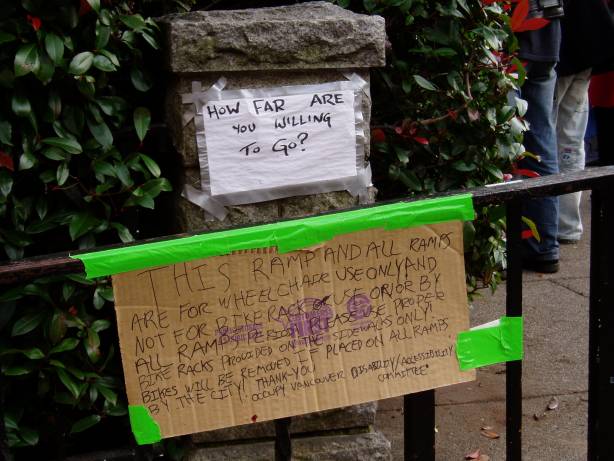 HOW FAR ARE
YOU WILLING
TO GO?
THIS RAMP AND ALL RAMPS
ARE FOR WHEELCHAIR USE ONLY AND
NOT FOR BIKE RACK USE OR/OR BY
ALL RAMPS PERIOD! PLEASE USE PROPER
BIKE RACKS PROVIDED ON THE SIDEWALKS ONLY!
BIKES WILL BE REMOVED IF PLACED ON ALL RAMPS
BY THE CITY! THANK-YOU
OCCUPY VANCOUVER DISABILITY/ACCESSIBILITY
COMMITTEE